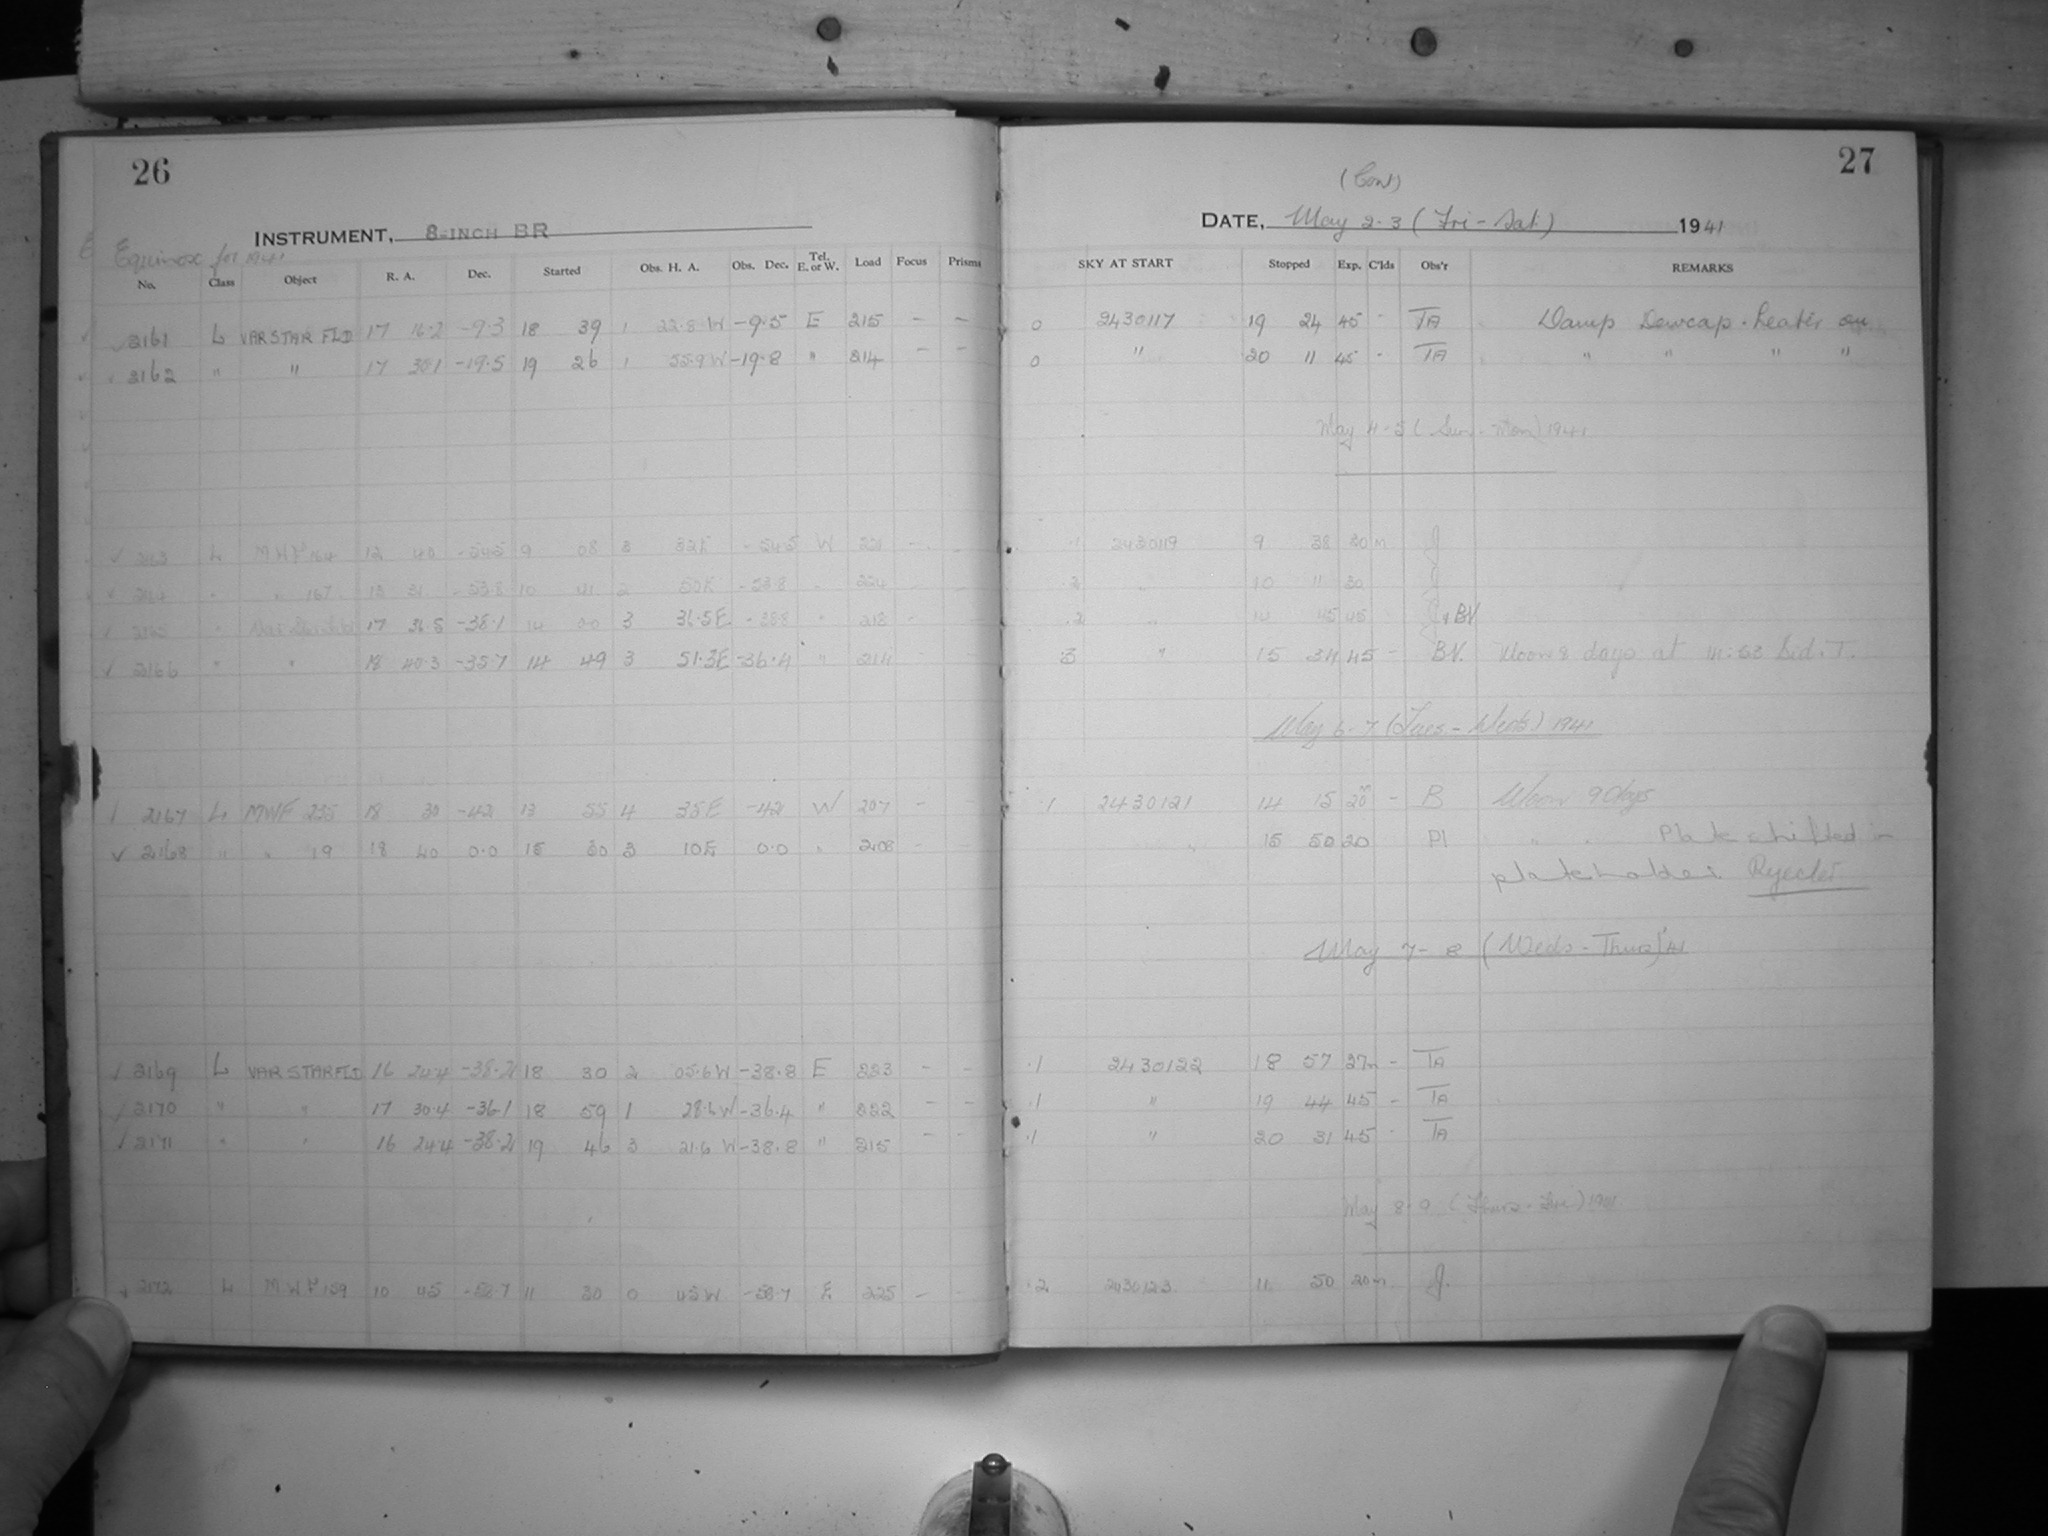 26
27
(Cont)
INSTRUMENT, 8-INCH BR
DATE, May 2-3 (Fri-Sat) 1941
Equinox for 1941
No. Class Object R. A. Dec. Started Obs. H. A. Obs. Dec. Tel. E. or W. Load Focus Prisms SKY AT START Stopped Exp. C'lds Obs'r REMARKS
2161 L VAR STAR FLD 17 16.2 -9.3 18 39 1 22.8 W -9.5 E 215 - - 0 2430117 19 24 45 - TA Damp Dewcap. heater on
2162 " " 17 30.1 -19.5 19 26 1 55.9 W -19.8 " 214 - - 0 " 20 11 45 - TA " " " "
May 4-5 (Sun-Mon) 1941
L MWF 164 12 40 -54.5 9 08 3 32E -54.5 W - - .1 2430119 9 38 30m J
" 167 13 31 -53.8 10 2 -53.8 224 - - .2 10 11 30 J
17 36.5 -38.1 14 00 3 36.5E -38.8 " 218 - - .2 " 14 45 45 J & BV
2166 " " 18 40.3 -35.7 14 49 3 51.3E -36.4 " 214 - - " 15 34 45 - BV. Moon 8 days at Sid. T.
May 6-7 (Tues-Weds) 1941
2167 L MWF 235 18 30 -42 13 55 4 35E -42 W 207 - - .1 2430121 14 15 20m - B Moon 9 days
✓ 2168 " " 19 18 40 0.0 15 30 3 10E 0.0 " 208 - - " 15 50 20 Pl " " Plate shifted in
plateholder. Rejected
May 7-8 (Weds-Thurs) '41
2169 L VAR STAR FLD 16 24.4 -38.2 18 30 2 05.6 W -38.8 E 223 - - .1 2430122 18 57 27m - TA
2170 " " 17 30.4 -36.1 18 59 1 28.6 W -36.4 " 222 - - .1 " 19 44 45 - TA
2171 " " 16 24.4 -38.2 19 46 3 21.6 W -38.8 " 215 - - .1 " 20 31 45 - TA
May 8-9 (Thurs-Fri) 1941
✓ 2172 L MWF 159 10 45 -58.7 11 30 0 45 W -58.7 E 225 - - .2 2430123 11 50 20m J.